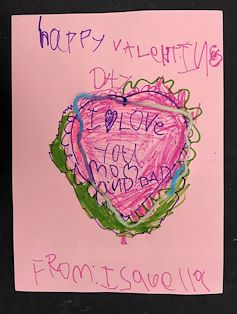 happy VALENTINS
DAY
I LOVE
YOU
MOM
AND DAD
FROM: ISabella